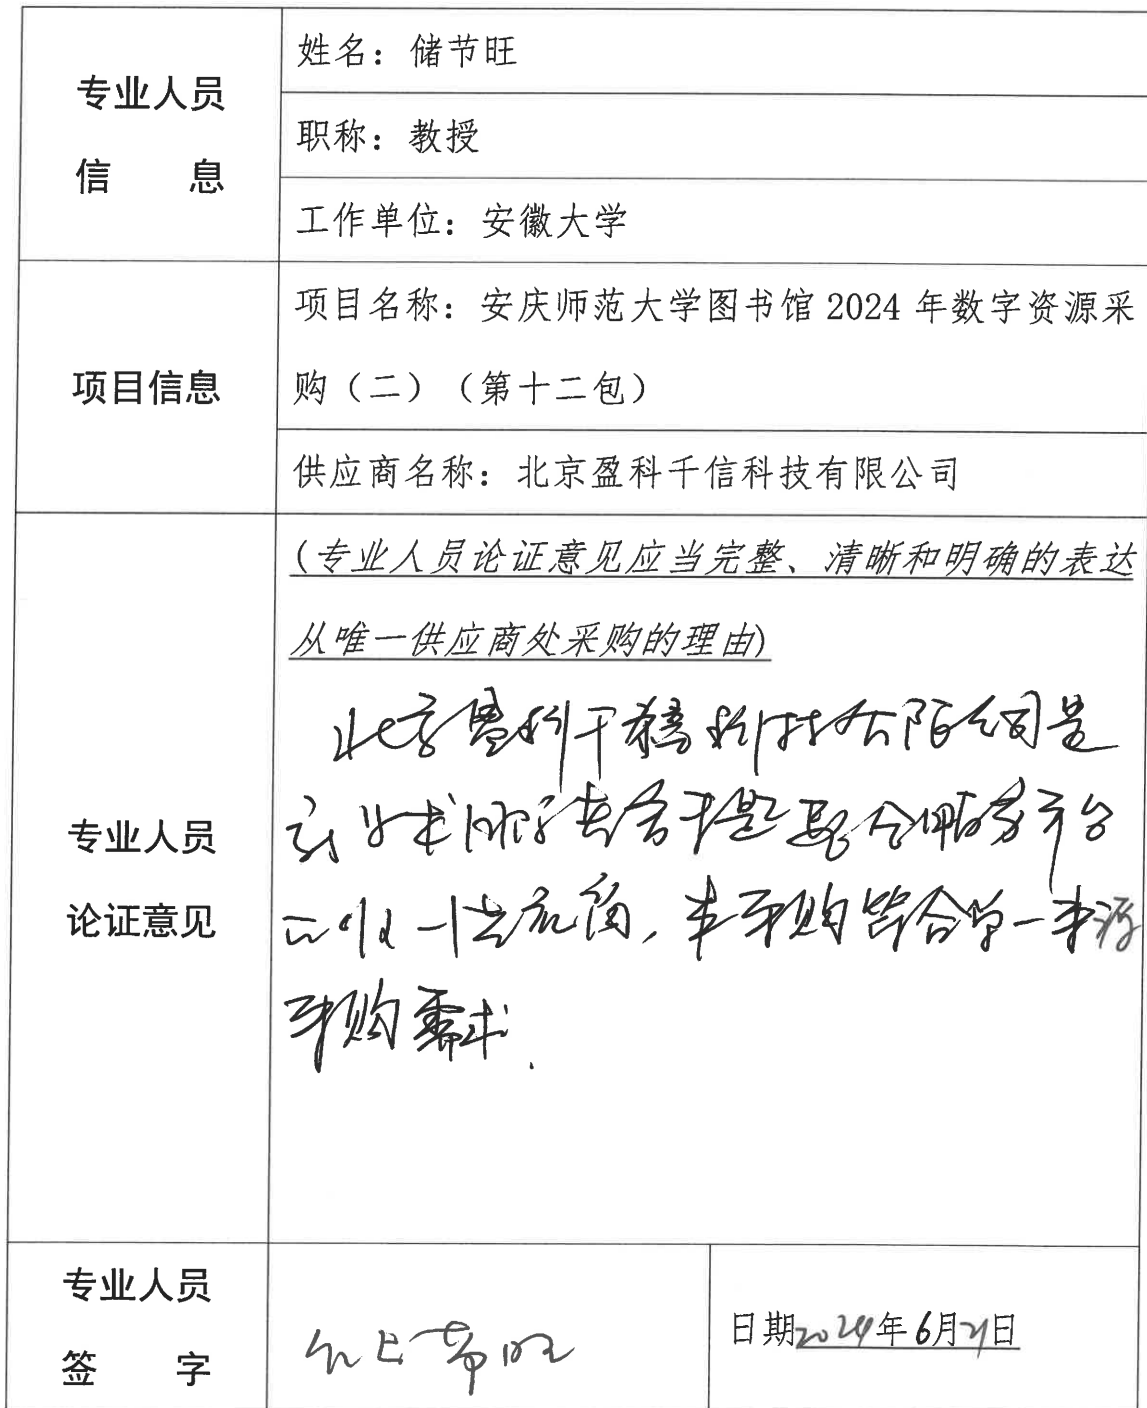 专业人员
信 息
姓名：储节旺
职称：教授
工作单位：安徽大学
项目信息
项目名称：安庆师范大学图书馆 2024 年数字资源采
购（二）（第十二包）
供应商名称：北京盈科千信科技有限公司
专业人员
论证意见
(专业人员论证意见应当完整、清晰和明确的表达
从唯一供应商处采购的理由)
北京盈科千信科技有限公司是
整合服务平台
唯一供应商，本采购符合单一来源
采购需求.
专业人员
签 字
储节旺
日期2024年6月21日